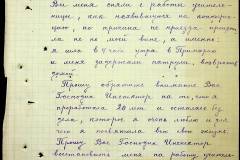 Вы меня сняли с работы учитель-
ницы, как неявившуюся на контору-
цию, по причине не проезда
ла не по моей вине, а именно
я шла в 4 часа утра в
и меня задержали патрули, возвратив
домой.
Прошу обратить внимание Вас
Господин Инспектор на то, что я
проработала 20 лет и осталась без
дела, которое я очень люблю и для
чего я посвятила всю свою жизнь.
Прошу Вас Господин Инспектор
восстановить меня на работу учитель-